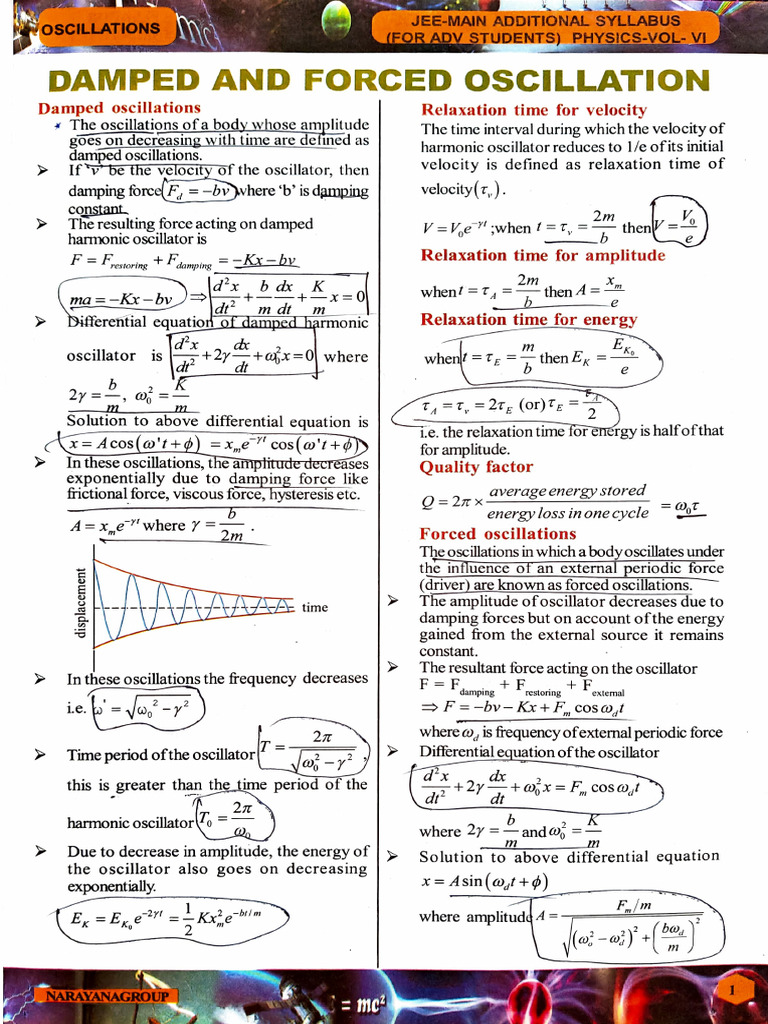 OSCILLATIONS
JEE-MAIN ADDITIONAL SYLLABUS
(FOR ADV STUDENTS) PHYSICS-VOL- VI
DAMPED AND FORCED OSCILLATION
Damped oscillations
* The oscillations of a body whose amplitude
goes on decreasing with time are defined as
damped oscillations.
➢ If 'v' be the velocity of the oscillator, then
damping force F_d = −bv where 'b' is damping
constant
➢ The resulting force acting on damped
harmonic oscillator is
F = F_restoring + F_damping = −Kx − bv
ma = −Kx − bv ⇒ d²x/dt² + b/m dx/dt + K/m x = 0
➢ Differential equation of damped harmonic
oscillator is d²x/dt² + 2γ dx/dt + ω₀²x = 0 where
2γ = b/m , ω₀² = K/m
Solution to above differential equation is
x = A cos(ω't + ϕ) = x_m e^(−γt) cos(ω't + ϕ)
➢ In these oscillations, the amplitude decreases
exponentially due to damping force like
frictional force, viscous force, hysteresis etc.
A = x_m e^(−γt) where γ = b/2m .
displacement
time
➢ In these oscillations the frequency decreases
i.e. ω' = √(ω₀² − γ²)
➢ Time period of the oscillator T = 2π/√(ω₀² − γ²) ,
this is greater than the time period of the
harmonic oscillator T₀ = 2π/ω₀
➢ Due to decrease in amplitude, the energy of
the oscillator also goes on decreasing
exponentially.
E_K = E_K₀ e^(−2γt) = 1/2 Kx_m² e^(−bt/m)
Relaxation time for velocity
The time interval during which the velocity of
harmonic oscillator reduces to 1/e of its initial
velocity is defined as relaxation time of
velocity (τ_v) .
V = V₀e^(−γt) ;when t = τ_v = 2m/b then V = V₀/e
Relaxation time for amplitude
when t = τ_A = 2m/b then A = x_m/e
Relaxation time for energy
when t = τ_E = m/b then E_K = E_K₀/e
τ_A = τ_v = 2τ_E (or) τ_E = τ_A/2
i.e. the relaxation time for energy is half of that
for amplitude.
Quality factor
Q = 2π × average energy stored/energy loss in one cycle = ω₀τ
Forced oscillations
The oscillations in which a body oscillates under
the influence of an external periodic force
(driver) are known as forced oscillations.
➢ The amplitude of oscillator decreases due to
damping forces but on account of the energy
gained from the external source it remains
constant.
➢ The resultant force acting on the oscillator
F = F_damping + F_restoring + F_external
⇒ F = −bv − Kx + F_m cos ω_d t
where ω_d is frequency of external periodic force
➢ Differential equation of the oscillator
d²x/dt² + 2γ dx/dt + ω₀²x = F_m cos ω_d t
where 2γ = b/m and ω₀² = K/m
➢ Solution to above differential equation
x = A sin(ω_d t + ϕ)
where amplitude A = F_m/m / √((ω_o² − ω_d²)² + (bω_d/m)²)
NARAYANAGROUP
= mc²
1